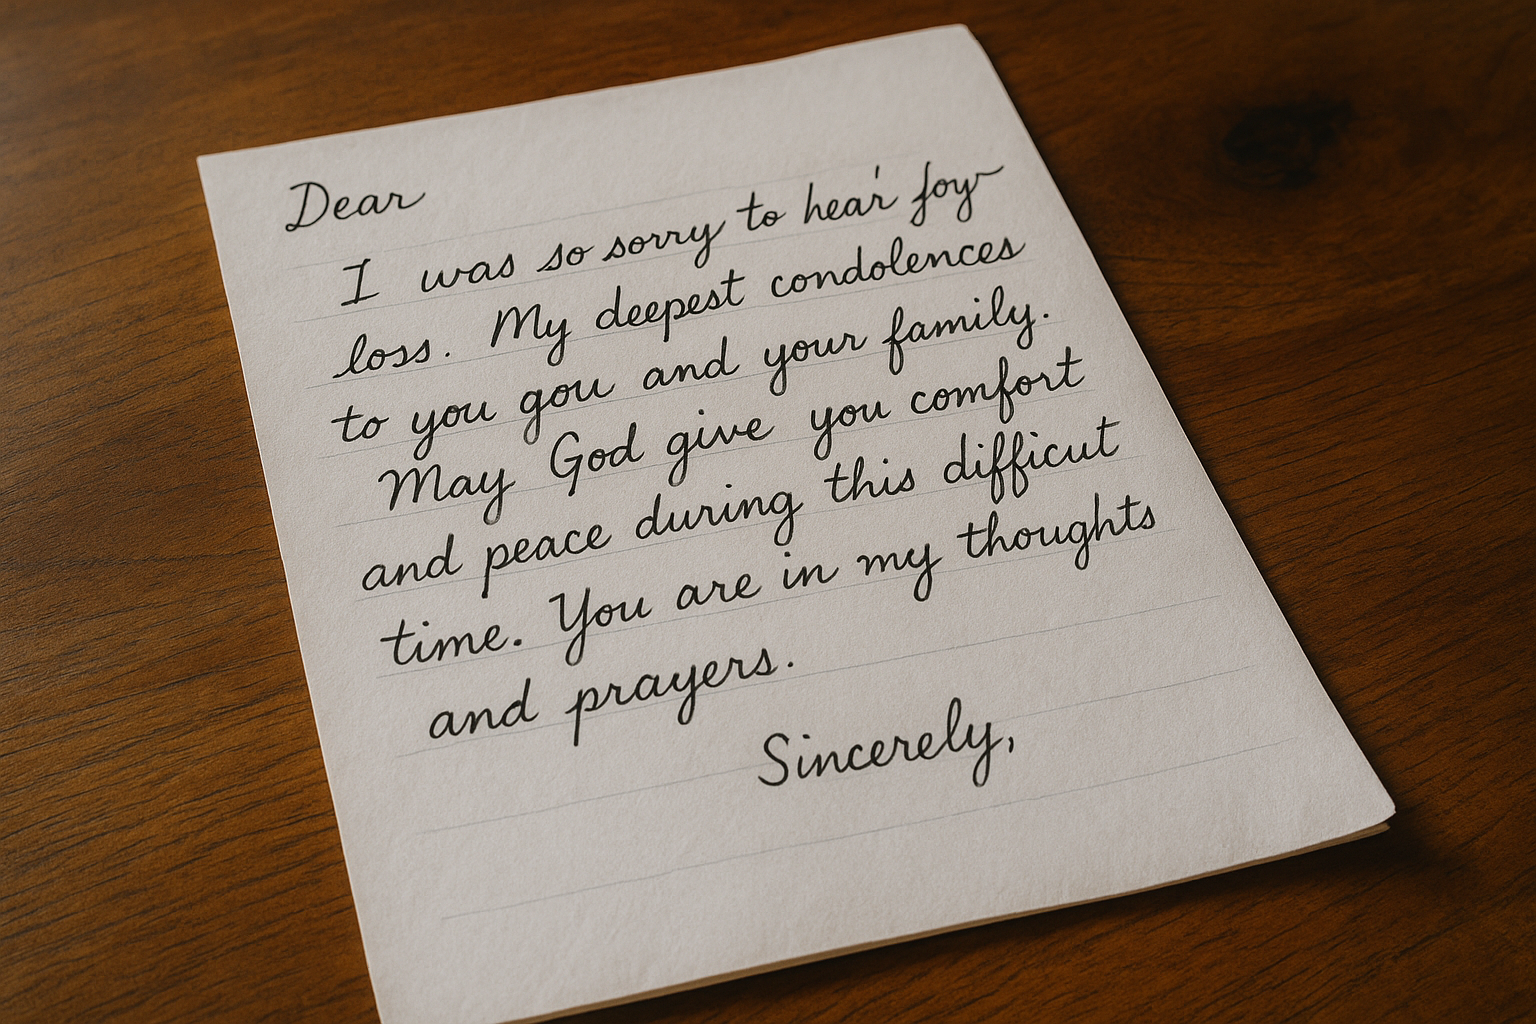 Dear
I was so sorry to hear foy
loss. My deepest condolences
to you gou and your family.
May God give you comfort
and peace during this difficut
time. You are in my thoughts
and prayers.
Sincerely,